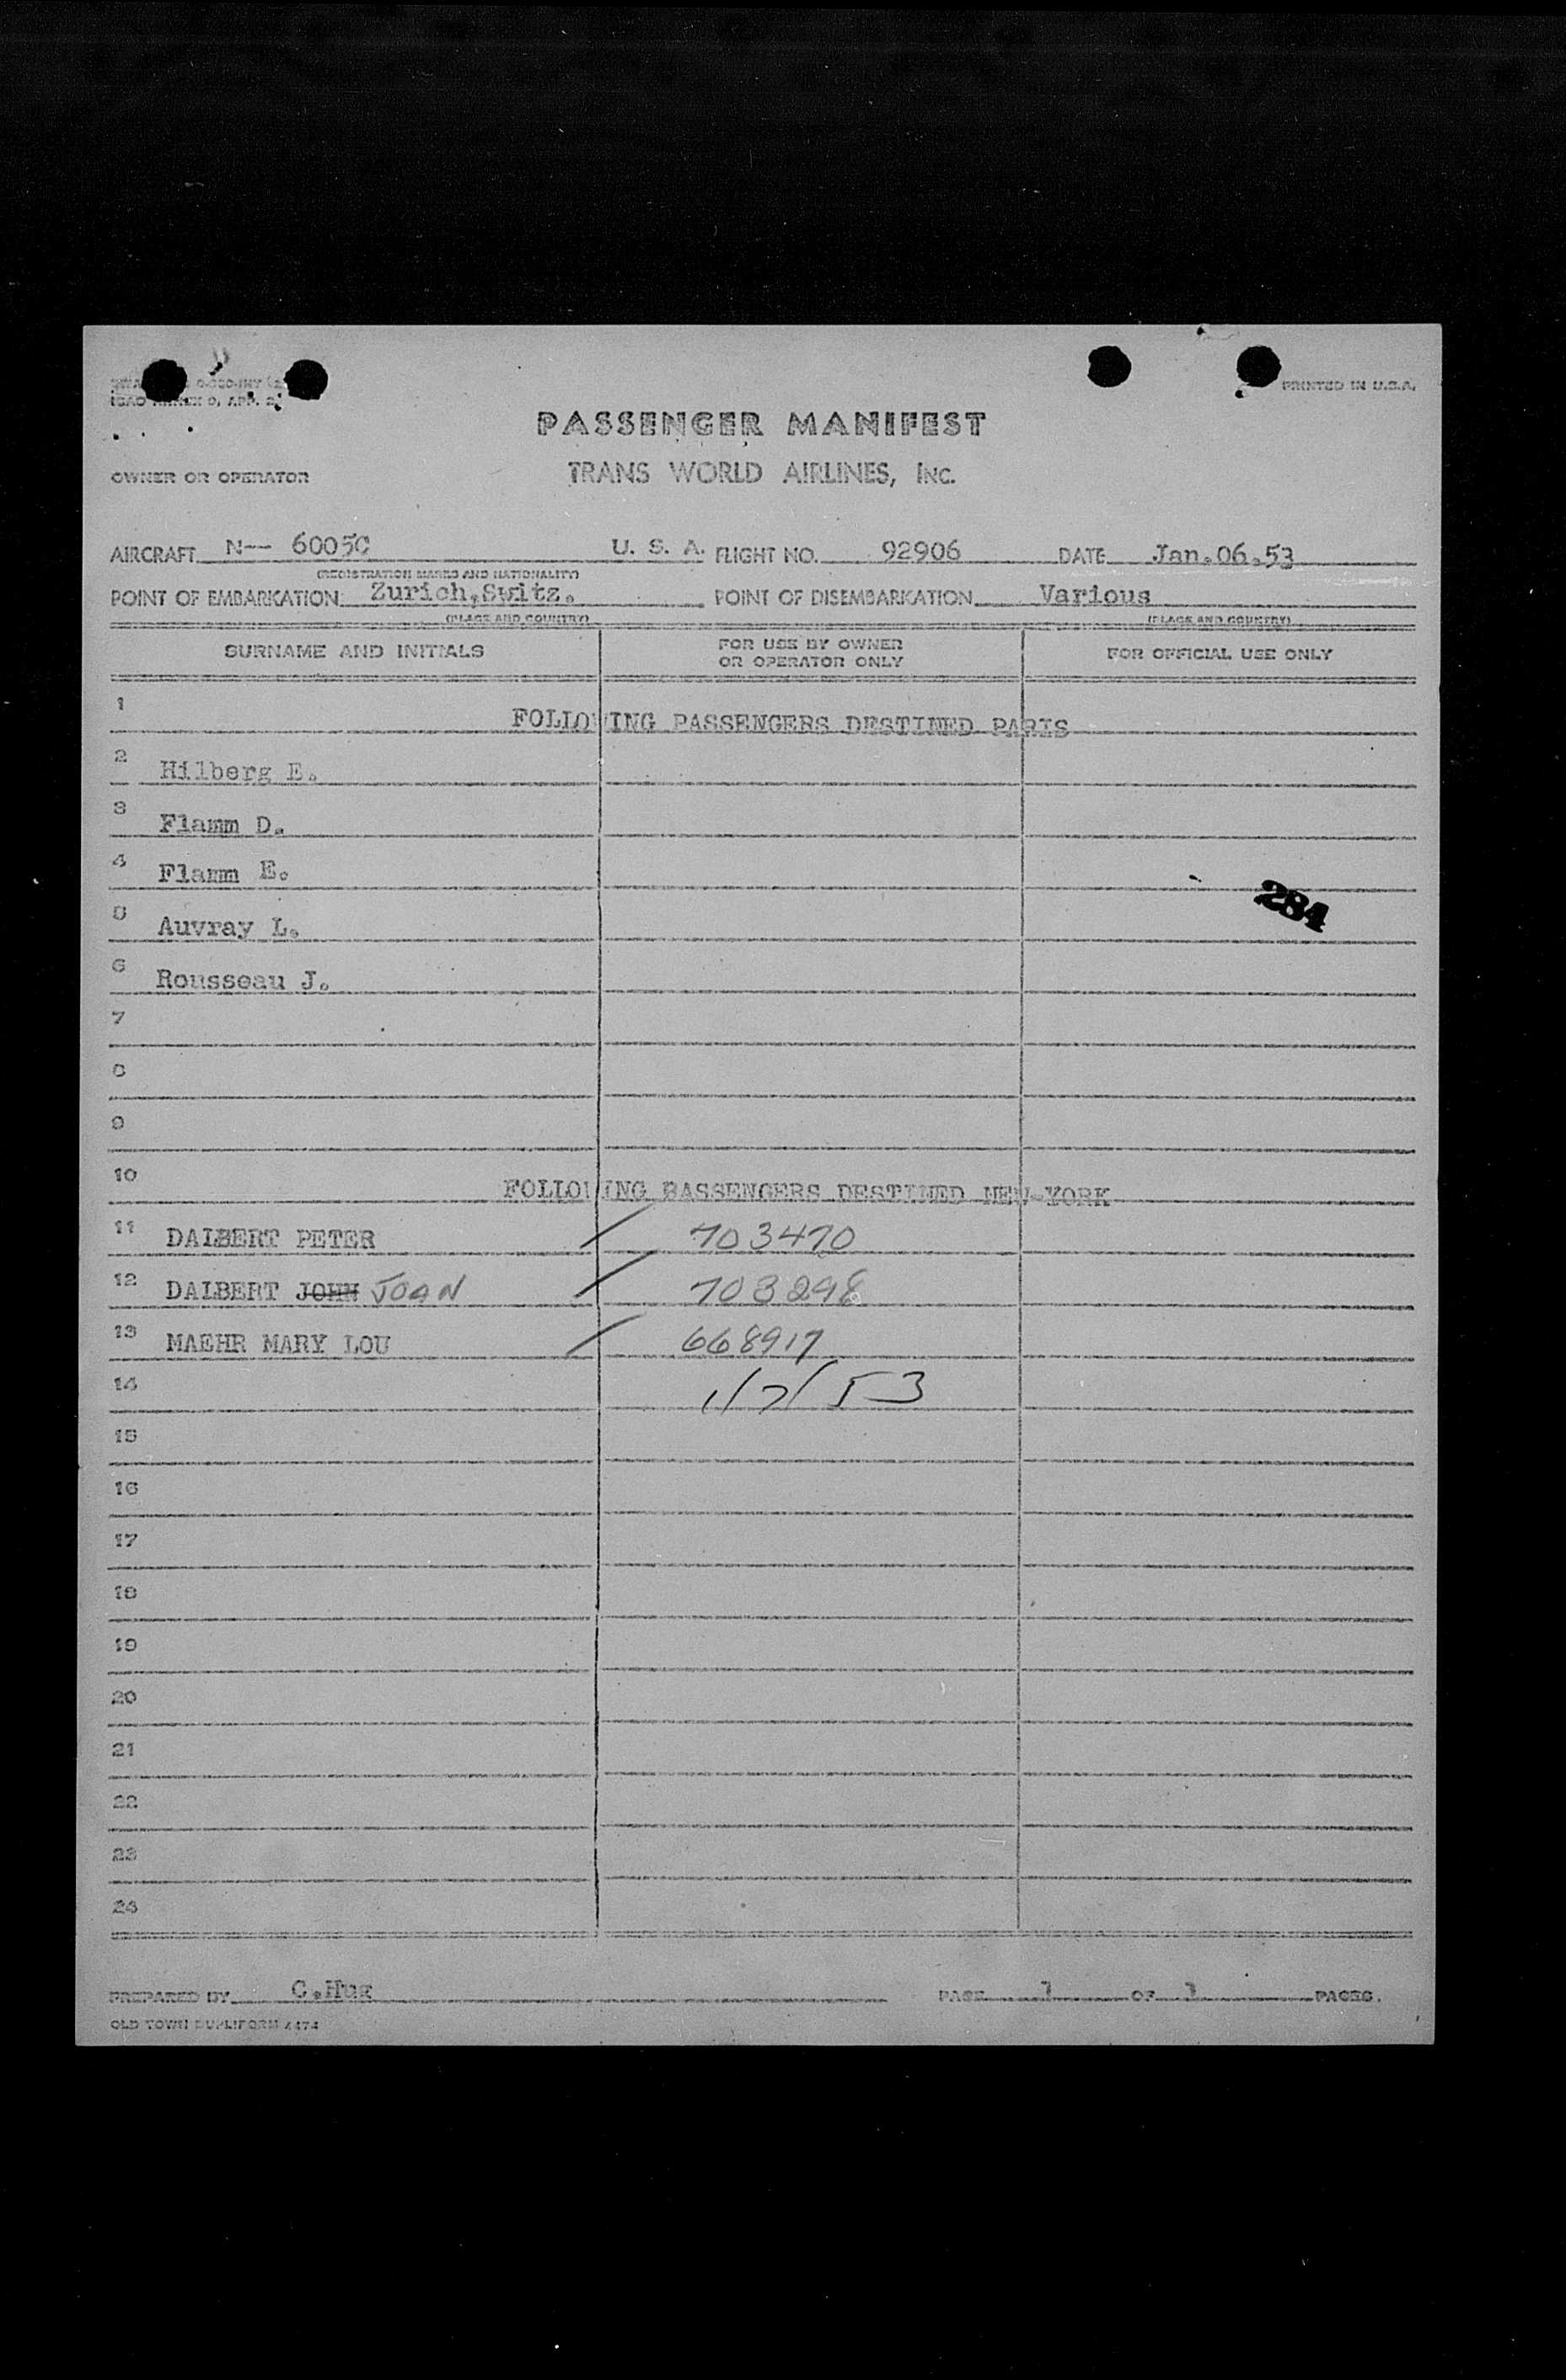 PRINTED IN U.S.A.
PASSENGER MANIFEST
OWNER OR OPERATOR TRANS WORLD AIRLINES, INC.
AIRCRAFT N-- 6005C U. S. A. FLIGHT NO. 92906 DATE Jan.06.53
(REGISTRATION MARKS AND NATIONALITY)
POINT OF EMBARKATION Zurich,Switz. POINT OF DISEMBARKATION Various
(PLACE AND COUNTRY) (PLACE AND COUNTRY)
SURNAME AND INITIALS FOR USE BY OWNER OR OPERATOR ONLY FOR OFFICIAL USE ONLY
1 FOLLOWING PASSENGERS DESTINED PARIS
2 Hilberg E.
3 Flamm D.
4 Flamm E.
284
5 Auvray L.
6 Rousseau J.
7
8
9
10 FOLLOWING PASSENGERS DESTINED NEW-YORK
11 DALBERT PETER / 703470
12 DALBERT JOHN JOAN / 703298
13 MAEHR MARY LOU / 668917
14 1/7/53
15
16
17
18
19
20
21
22
23
24
PREPARED BY C.Hug PAGE 1 OF 1 PAGES.
OLD TOWN DUPLIFORM 4474